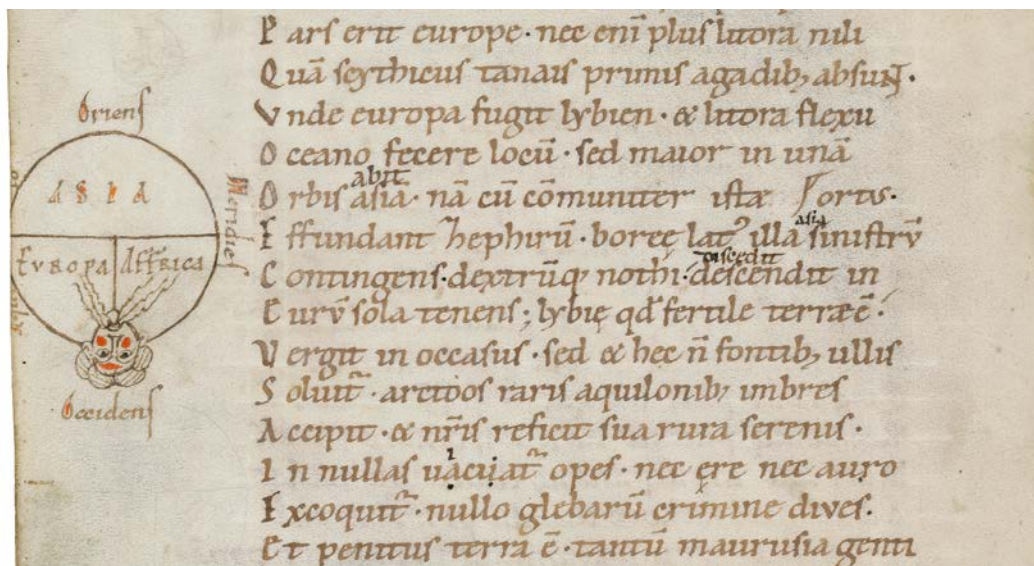 Oriens
Meridies
ASIA
EVROPA AFFRICA
Occidens
P ars erit europe· nec enī plus litora nili
Q uā scythicus tanais primis agadibꝫ absunt·
V nde europa fugit lybien· & litora flexu
O ceano fecere locū· sed maior in unā
abit
O rbis asiā· nā cū cōmuniter ista
asia
E ffundant Zephirū· boreę latꝰ illa sinistrū
discedit
C ontingens· dextrūqꝫ nothi· descendit in
E urū sola tenens; lybię qđ fertile terræ ē·
V ergit in occasus· sed & hec n̄ fontibꝫ ullis
S oluit᷑· arctoos raris aquilonibꝫ imbres
A ccipit· & nr̄is reficit sua rura serenis·
I n nullas opes· nec ęre nec auro
E xcoquit᷑· nullo glebarū crimine dives·
E t penitus terra ē· tantū maurusia genti